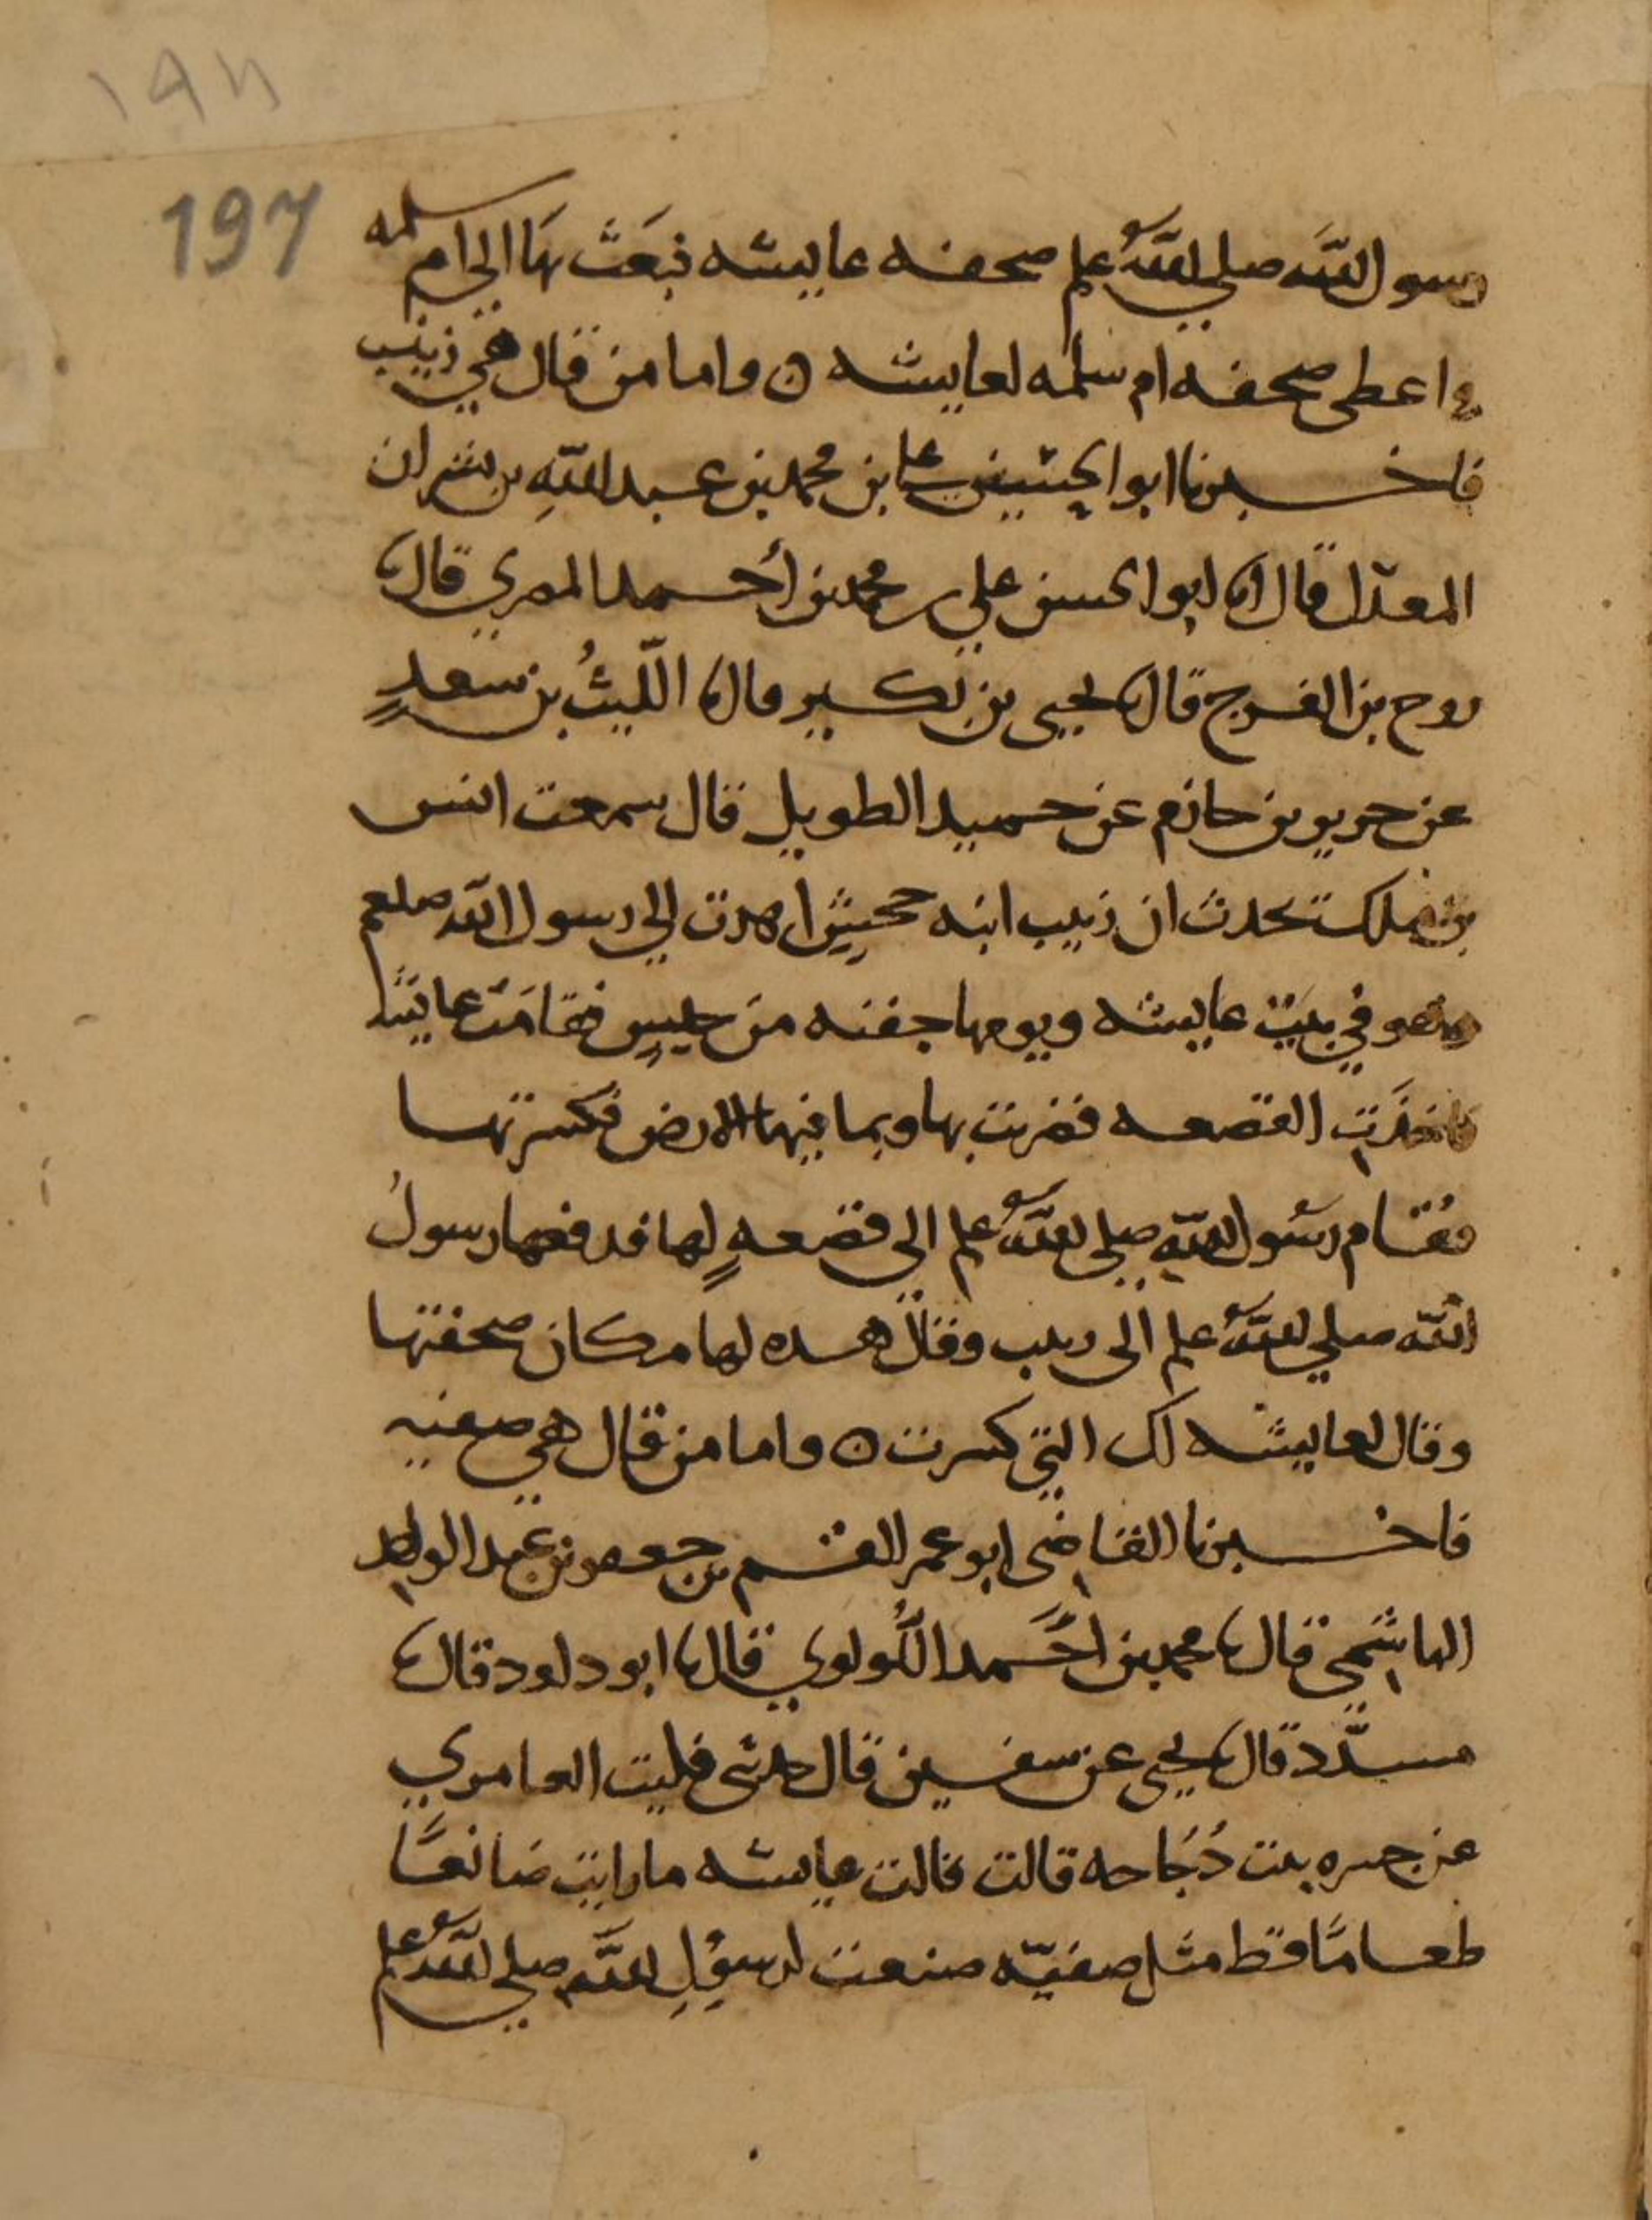 ١٩٨
197
رسول الله صلى الله عليه وسلم صحفه عايشه فبعث بها الى ام سلمه
واعطى صحفه ام سلمه لعايشه ه واما من قال هي زينب
فاخبرنا ابو الحسين علي بن محمد بن عبد الله بن بشران
المعدل قال انا ابو الحسن علي بن محمد بن أحمد المصري قال نا
روح بن الفرج قال نا يحيى بن بكير قال نا الليثُ بن سعدٍ
عن جرير بن حازم عن حميد الطويل قال سمعت انس
بن ملك تحدث ان زينب ابنه جحش اهدت الى رسول الله صلعم
وهو في بيت عايشه ويومها جفنه من حيسٍ فقامت عايشه
فاخذت القصعه فضربت بها وبما فيها الارض فكسرتها
فقام رسول الله صلى الله عليه وسلم الى قصعهٍ لها فدفعها رسولُ
الله صلى الله عليه وسلم الى زينب وقال هذه لها مكان صحفتها
وقال لعايشه لك التي كسرت ه واما من قال هي صفيه
فاخبرنا القاضي ابو عمر القسم بن جعفر بن عبد الواحد
الهاشمي قال نا محمد بن احمد اللولوي قال نا ابو داود قال نا
مسدّد قال نا يحيى عن سفين قال حدثني فليت العامري
عن جسره بنت دُجَاجه قالت قالت عايشه ما رايت صانعًا
طعامًا قط مثل صفيّه صنعت لرسولِ الله صلى الله عليه وسلم